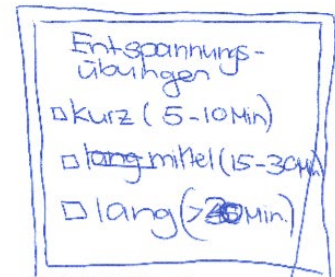 Entspannungs-
übungen
□ kurz (5-10 Min)
□ mittel (15-30 Min)
□ lang (> Min.)